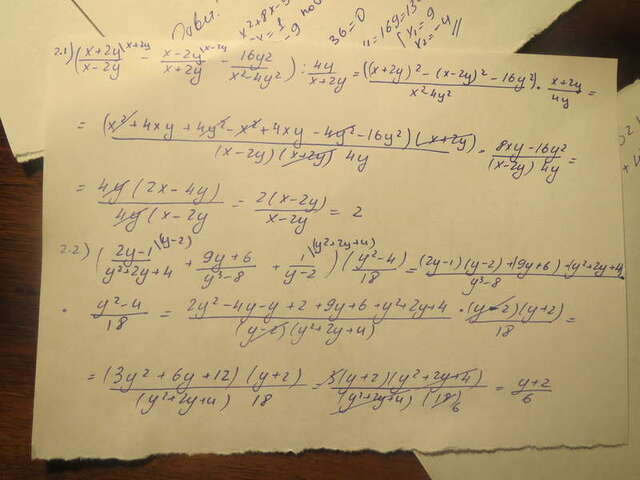 Pави.
x²+8x-9
-x=1
-9
36=0
"=169=13²
[x₁=9
x₂=-4 ||
2.1) ((x+2y)/(x-2y) |x+2y - (x-2y)/(x+2y) |x-2y - 16y²/(x²-4y²)) : 4y/(x+2y) = ((x+2y)²-(x-2y)²-16y²)/(x²4y²) · (x+2y)/4y =
= (x²+4xy+4y²-x²+4xy-4y²-16y²)(x+2y)/((x-2y)(x+2y) 4y) = (8xy-16y²)/((x-2y) 4y) =
= 4y(2x-4y)/(4y(x-2y) = 2(x-2y)/(x-2y) = 2
2.2) ((2y-1)/(y²+2y+4) |(y-2) + (9y+6)/(y³-8) + 1/(y-2) |(y²+2y+4)) (y²-4)/18 = ((2y-1)(y-2)+(9y+6)+(y²+2y+4)/(y³-8)
· (y²-4)/18 = (2y²-4y-y+2+9y+6+y²+2y+4)/((y-2)(y²+2y+4)) · (y-2)(y+2)/18 =
= (3y²+6y+12)(y+2)/((y²+2y+4) 18) = 3(y+2)(y²+2y+4)/((y²+2y+4)(18)6) = (y+2)/6